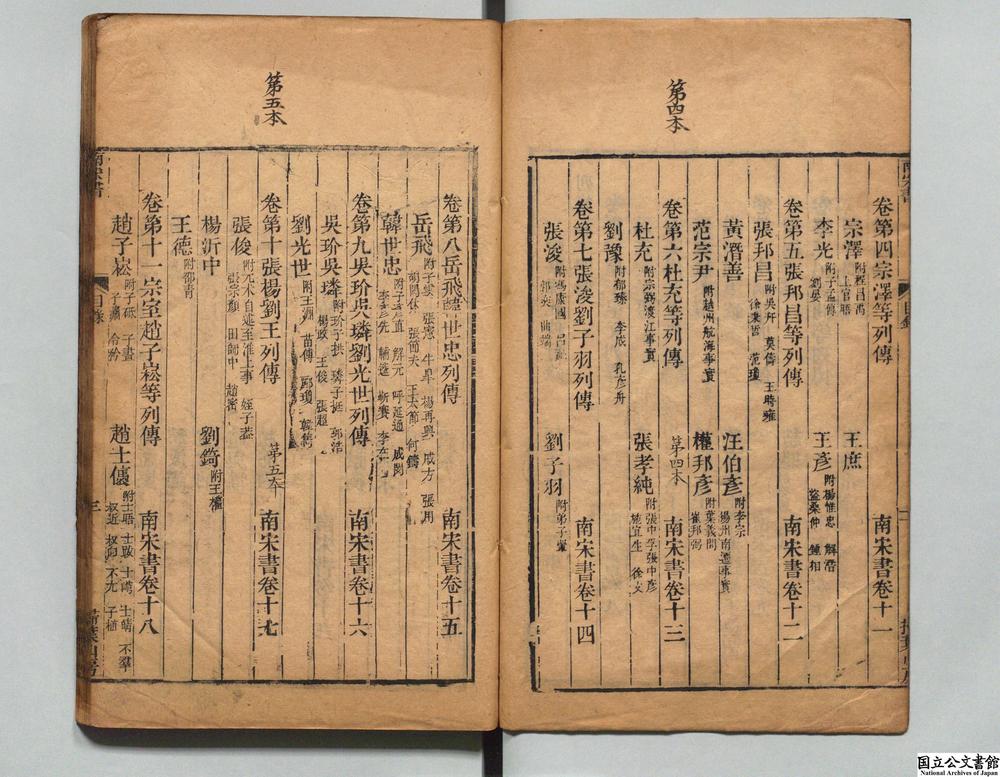 第四本
卷第四宗澤等列傳 南宋書卷十一
宗澤 王庶
李光 王彥 附楊惟忠 解潛
卷第五張邦昌等列傳 南宋書卷十二
張邦昌 附吳幵 莫儔 王時雍 徐秉哲 范瓊
黃潛善 汪伯彥 附李宗 揚州南遷事實
范宗尹 附越州航海事實 權邦彥 附葉義問 崔邦弼
卷第六杜充等列傳 第四本 南宋書卷十三
杜充 附宗弼渡江事實 張孝純 附張中孚張中彥 施宜生 徐文
劉豫 附郁臻 李成 孔彥舟
卷第七張浚劉子羽列傳 南宋書卷十四
張浚 附馮康國 呂祉 劉子羽 附弟子翬
第五本
卷第八岳飛韓世忠列傳 南宋書卷十五
岳飛 附子雲 張憲 牛皋 楊再興 成方 張用
韓世忠 附子彥直 解元 呼延通 成閔
卷第九吳玠吳璘劉光世列傳 南宋書卷十六
吳玠吳璘 附玠子拱 璘子挺 郭浩 楊政 王俊 張超
劉光世 附王淵 苗傅 酈瓊
卷第十張楊劉王列傳 第五本 南宋書卷十七
張俊 張宗顏 田師中 趙密
楊沂中 劉錡 附王權
王德 附邵青
卷第十一宗室趙子崧等列傳 南宋書卷十八
趙子崧 附子砥 子晝 趙士㒟
目錄
三
国立公文書館
National Archives of Japan